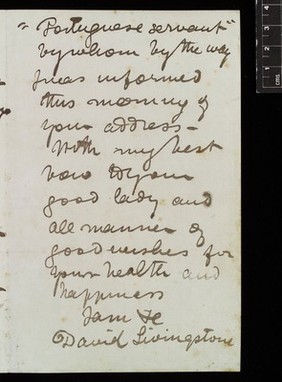 "Portuguese servant"
by whom by the way
I was informed
this morning of
your address -
With my best
bow to your
good lady and
all manner of
good wishes for
your health and
happiness
I am &c
David Livingstone
cms
1
2
3
4